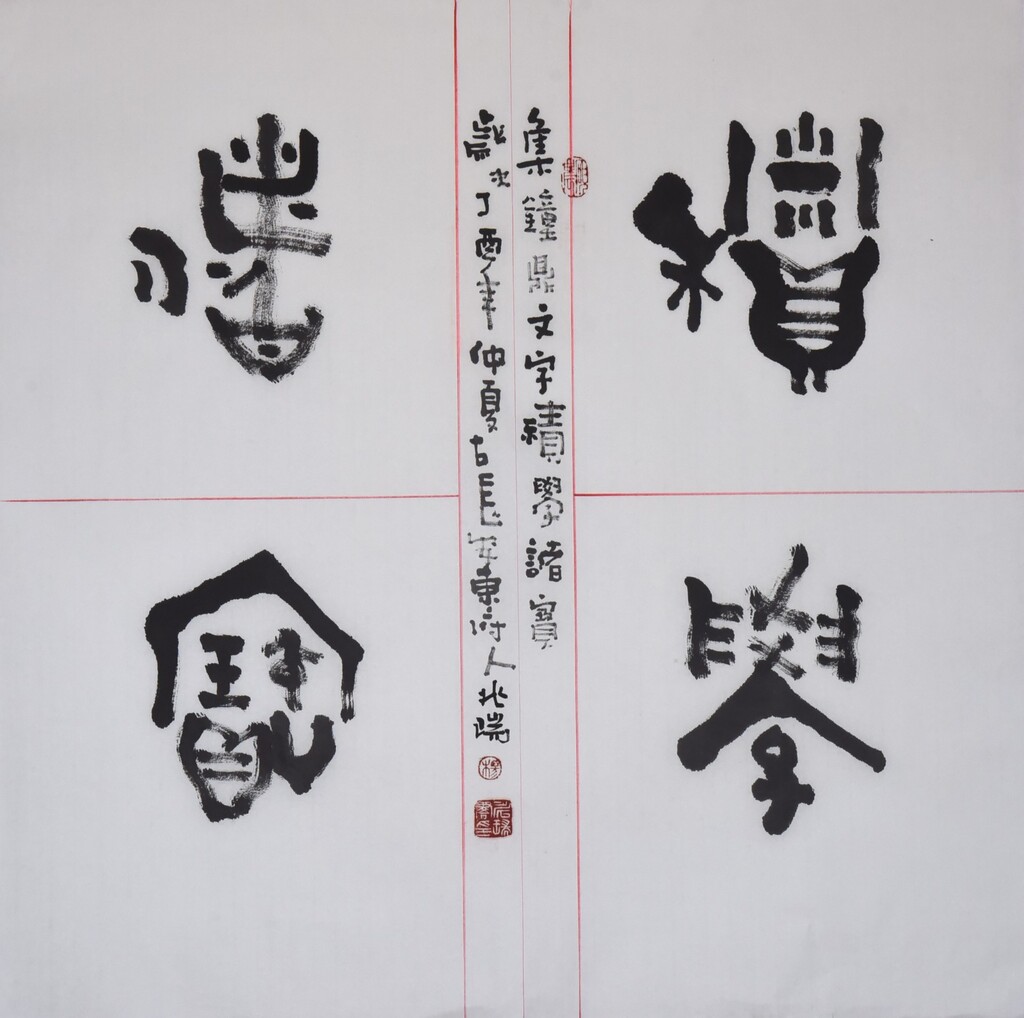 積學
儲寶
集鐘鼎文字積學諸寶
歲次丁酉年仲夏古長安東府人兆瑞